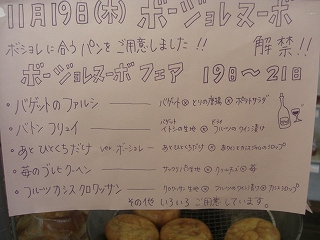 11月19日(木) ボージョレヌーボ 解禁!!
ボジョレに合うパンをご用意しました!!
ボージョレヌーボ フェア 19日〜21日
・バゲットのファルシ バゲット ポークサラダ
・バトン フリュイ の生地 フルーツのワイン漬け
・あとひとくちだけ ver. ボージョレー あとひとくちだけ
・苺のブレヒクーヘン サックリパイ生地 クリームチーズ 苺
・フルーツカシスクロワッサン クロワッサン生地 フルーツのワイン漬け カシスシロップ
その他 いろいろ ご用意しています。